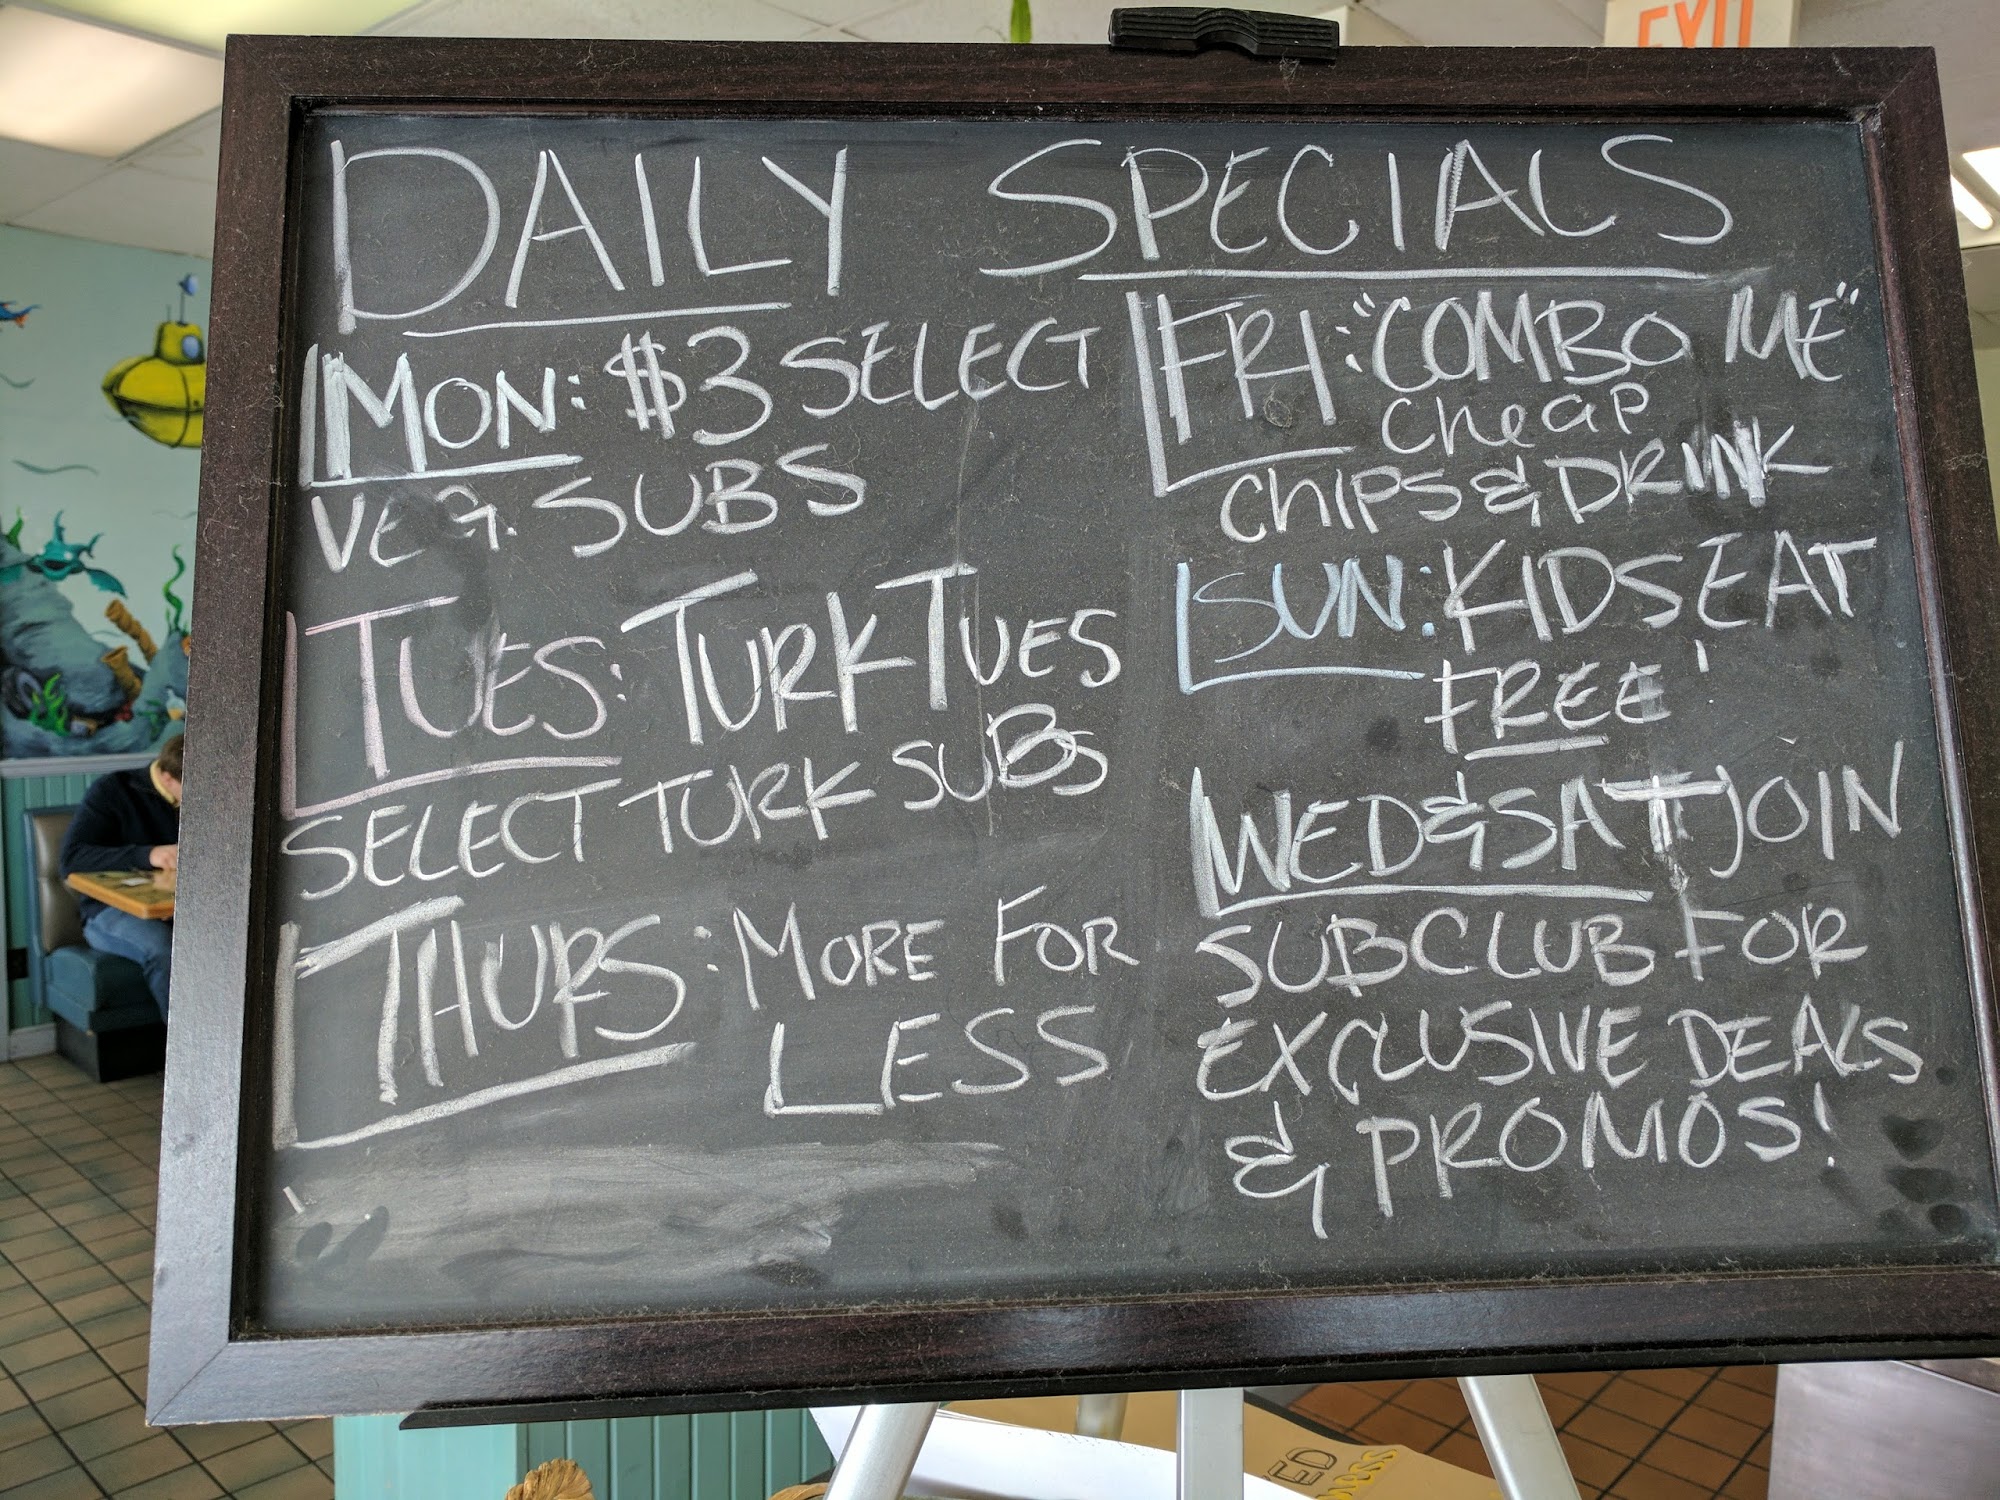 EXIT
DAILY SPECIALS
MON: $3 SELECT
VEG. SUBS
TUES: TURK TUES
SELECT TURK SUBS
THURS: MORE FOR
LESS
FRI: "COMBO ME"
Cheap
CHIPS & DRINK
SUN: KIDS EAT
FREE!
WED & SAT JOIN
SUBCLUB FOR
EXCLUSIVE DEALS
& PROMOS!